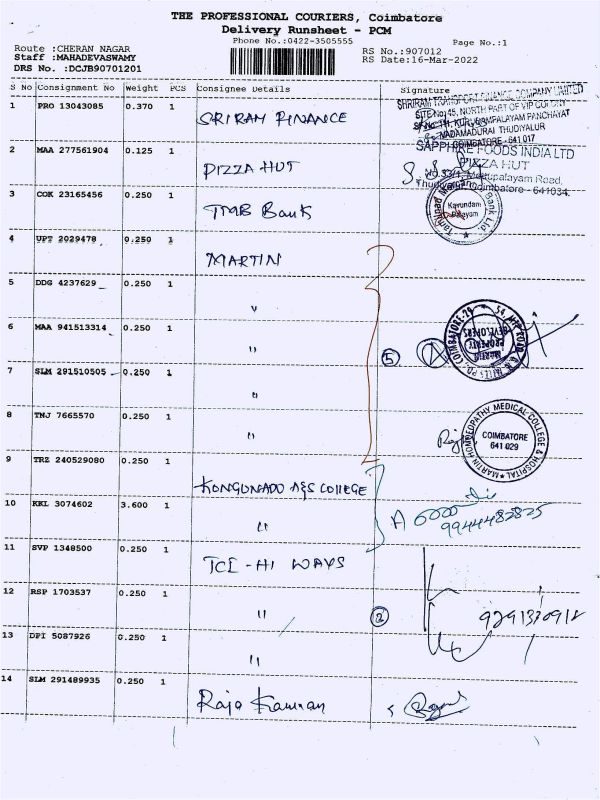 THE PROFESSIONAL COURIERS, Coimbatore
Delivery Runsheet - PCM
Phone No.:0422-3505555
Page No.:1
Route :CHERAN NAGAR
Staff :MAHADEVASWAMY
DRS No. :DCJB90701201
RS No.:907012
RS Date:16-Mar-2022
S No Consignment No Weight PCS Consignee Details Signature
1 PRO 13043085 0.370 1 SRIRAM FINANCE
SHRIRAM TRANSPORT FINANCE COMPANY LIMITED
SITE No: 45, NORTH PART OF VIP COLONY
MADAMADURAI THUDIYALUR
COIMBATORE - 641 017
2 MAA 277561904 0.125 1 PIZZA HUT
SAPPHIRE FOODS INDIA LTD
PIZZA HUT
Mettupalayam Road,
Thudiyalur, Coimbatore - 641034.
3 COK 23165456 0.250 1 TMB Bank
4 UPT 2029478 0.250 1 MARTIN
5 DDG 4237629 0.250 1 "
6 MAA 941513314 0.250 1 " 5
MARTIN
PROPERTY
DEVELOPERS
7 SLM 291510505 0.250 1 "
8 TNJ 7665570 0.250 1 "
MARTIN HOMOEOPATHY MEDICAL COLLEGE & HOSPITAL
COIMBATORE
641 029
9 TRZ 240529080 0.250 1 KONGUNADU A&S COLLEGE
10 KKL 3074602 3.600 1 "
11 SVP 1348500 0.250 1 TCI - HI WAYS
12 RSP 1703537 0.250 1 " 2
13 DPI 5087926 0.250 1 "
14 SLM 291489935 0.250 1 Raja Kannan